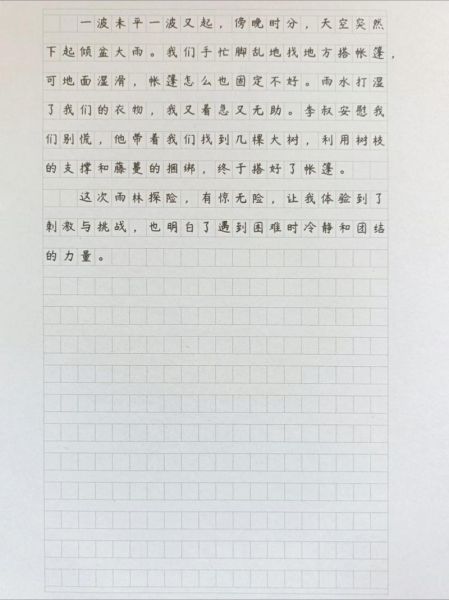 一波未平一波又起，傍晚时分，天空突然
下起倾盆大雨。我们手忙脚乱地找地方搭帐篷，
可地面湿滑，帐篷怎么也固定不好。雨水打湿
了我们的衣物，我又着急又无助。李叔安慰我
们别慌，他带着我们找到几棵大树，利用树枝
的支撑和藤蔓的捆绑，终于搭好了帐篷。
这次雨林探险，有惊无险，让我体验到了
刺激与挑战，也明白了遇到困难时冷静和团结
的力量。